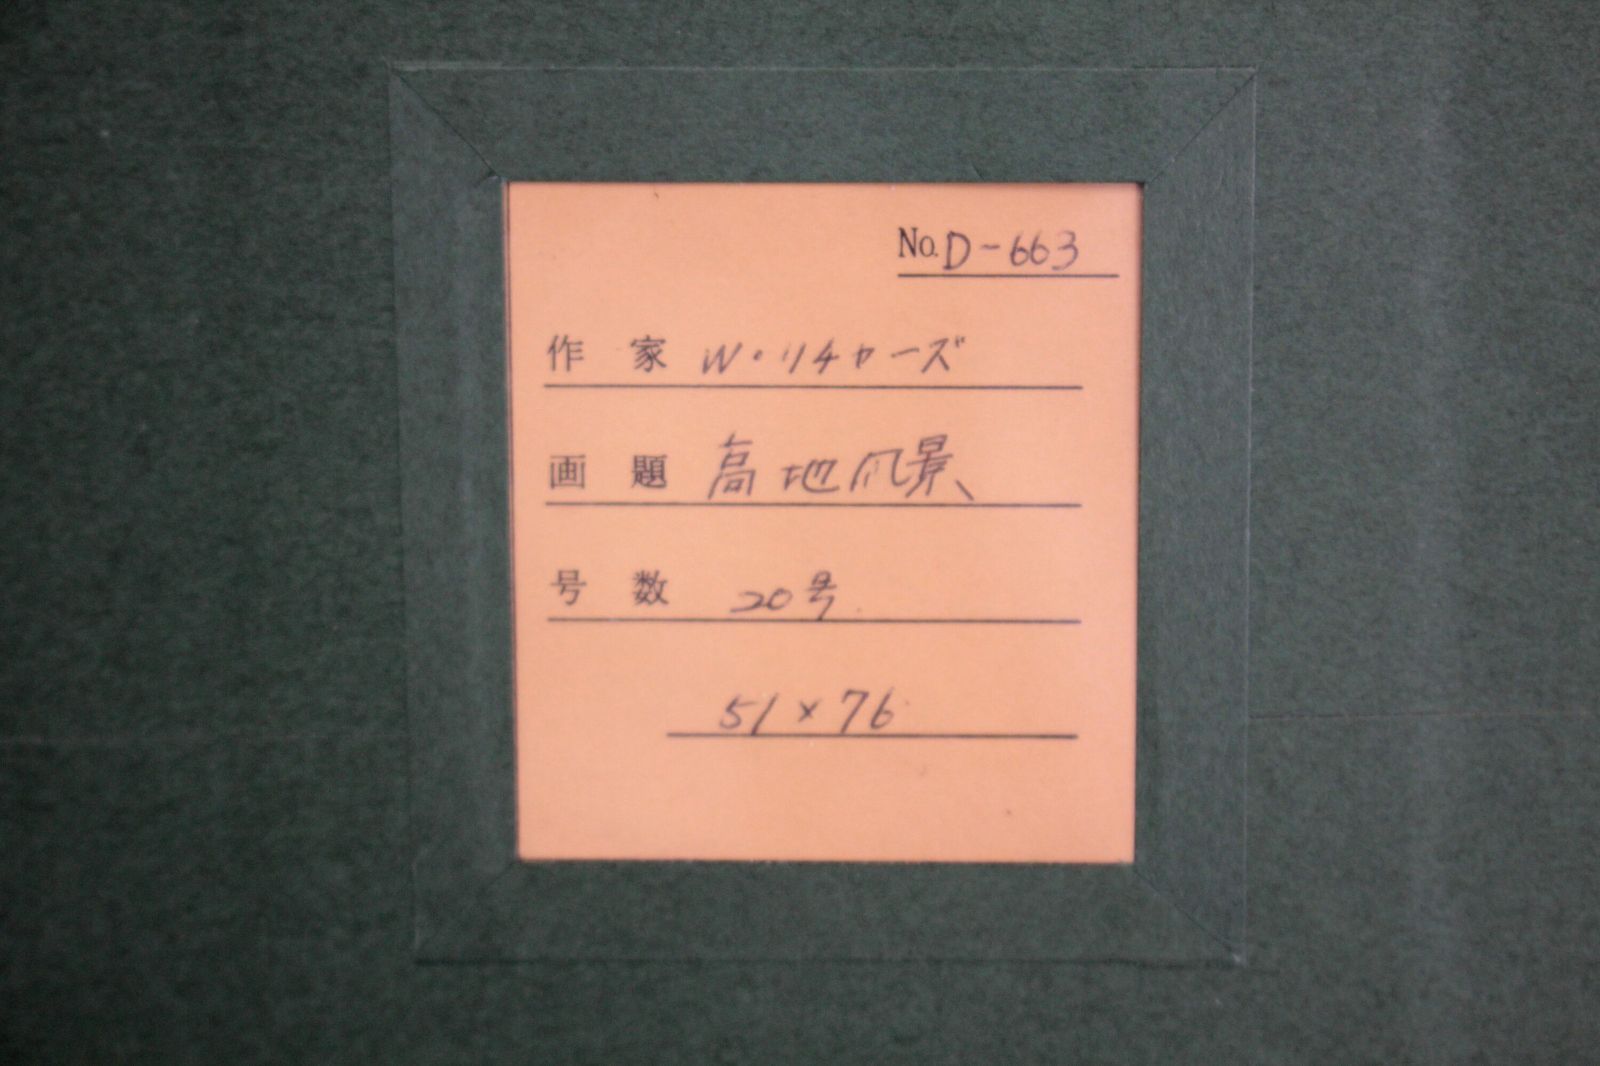 No. D-663
作家 W・リチャーズ
画題 高地風景
号数 20号
51×76